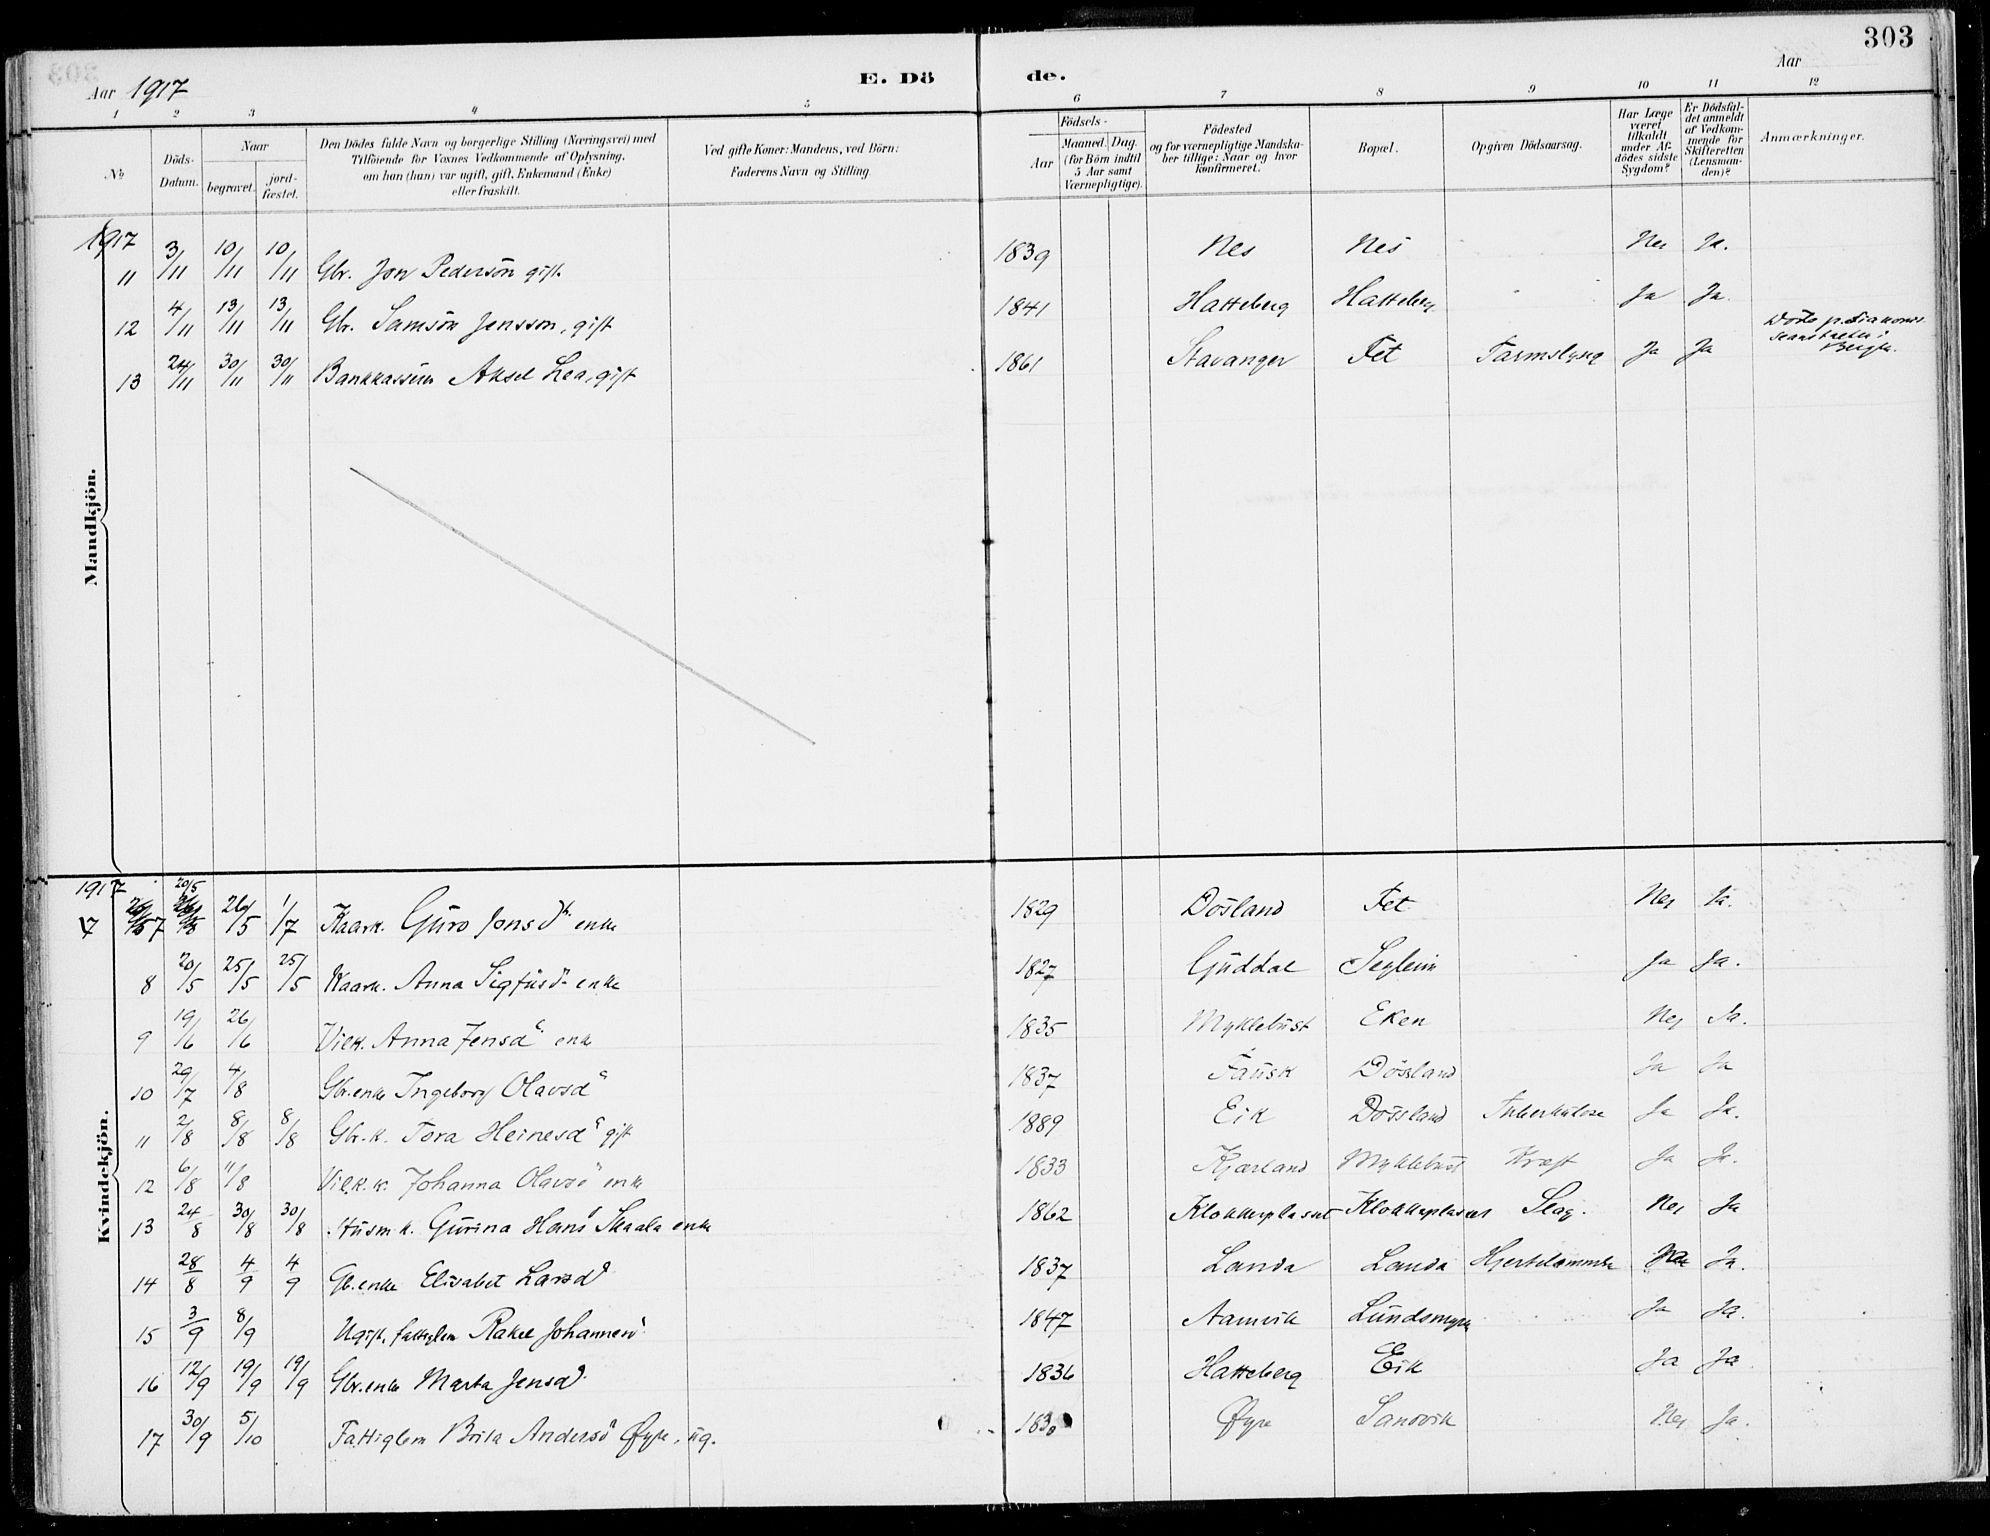 303
Aar 1917
E. Dö de.
Aar
1 2 3 4 5 6 7 8 9 10 11 12
№
Döds-Datum.
Naar
begravet.
jord-fæstet.
Den Dödes fulde Navn og borgerlige Stilling (Næringsvei) med
Tilföiende for Voxnes Vedkommende af Oplysning,
om han (hun) var ugift, gift, Enkemand (Enke)
eller fraskilt.
Ved gifte Koner: Mandens, ved Börn:
Faderens Navn og Stilling.
Födsels-
Aar
Maaned. Dag.
(for Börn indtil
5 Aar samt
Værnepligtige).
Födested
og for værnepligtige Mandska-
ber tillige: Naar og hvor
konfirmeret.
Bopæl.
Opgiven Dödsaarsag.
Har Læge
været
tilkaldt
under Af-
dödes sidste
Sygdom?
Er Dödsfal-
det anmeldt
af Vedkom-
mende for
Skifteretten
(Lensman-
den)?
Anmærkninger.
Mandkjön.
1917
11 3/11 10/11 10/11 Gbr. Jon Pederson gift 1839 Nes Nes Nei Ja.
12 4/11 13/11 13/11 Gbr. Samson Jensson, gift 1841 Hatteberg Hatteberg Ja Ja.
13 24/11 30/11 30/11 Bankkasserer Aksel Lea, gift 1861 Stavanger Fet Tarmslyng Ja Ja Döde p. Diakonis
Bergen.
Kvindekjön.
1917
7 20/5 26/5 1/7 Kaark. Guro Jonsdtr. enke 1829 Dösland Fet Nei Ja.
8 20/5 25/5 25/5 Kaark. Anna Sigfusdr enke 1827 Guddal Seglem Ja Ja.
9 19/6 26/6 Vilk. Anna Jensdr enke 1835 Myklebust Eken Nei Ja.
10 29/7 4/8 Gbr.enke Ingeborg Olavsdr 1837 Fausk Dösland Ja Ja
11 2/8 8/8 8/8 Gbr.k. Tora Heinesdr gift 1889 Eik Dösland Tuberkulose Ja Ja.
12 6/8 11/8 Vilk.k. Johanna Olavsd enke 1833 Kjærland Myklebust Kræft Ja Ja.
13 24/8 30/8 30/8 Husm.k. Gurina Hansd Skaala enke 1862 Klokkerplasset Klokkerplasset Slag. Nei Ja
14 28/8 4/9 4/9 Gb.enke Elisabet Larsd 1837 Landa Landa Hjertelammelse Ja.
15 3/9 8/9 Ugift, fattiglem Rakel Johannesd 1847 Aamvik Lundsmyra Ja Ja.
16 12/9 19/9 19/9 Gbr.enke Marta Jensd. 1836 Hatteberg Eik Ja Ja
17 30/9 5/10 Fattiglem Brita Andersd Øyre, ug. 1830 Øyre Sandvik Nei Ja.